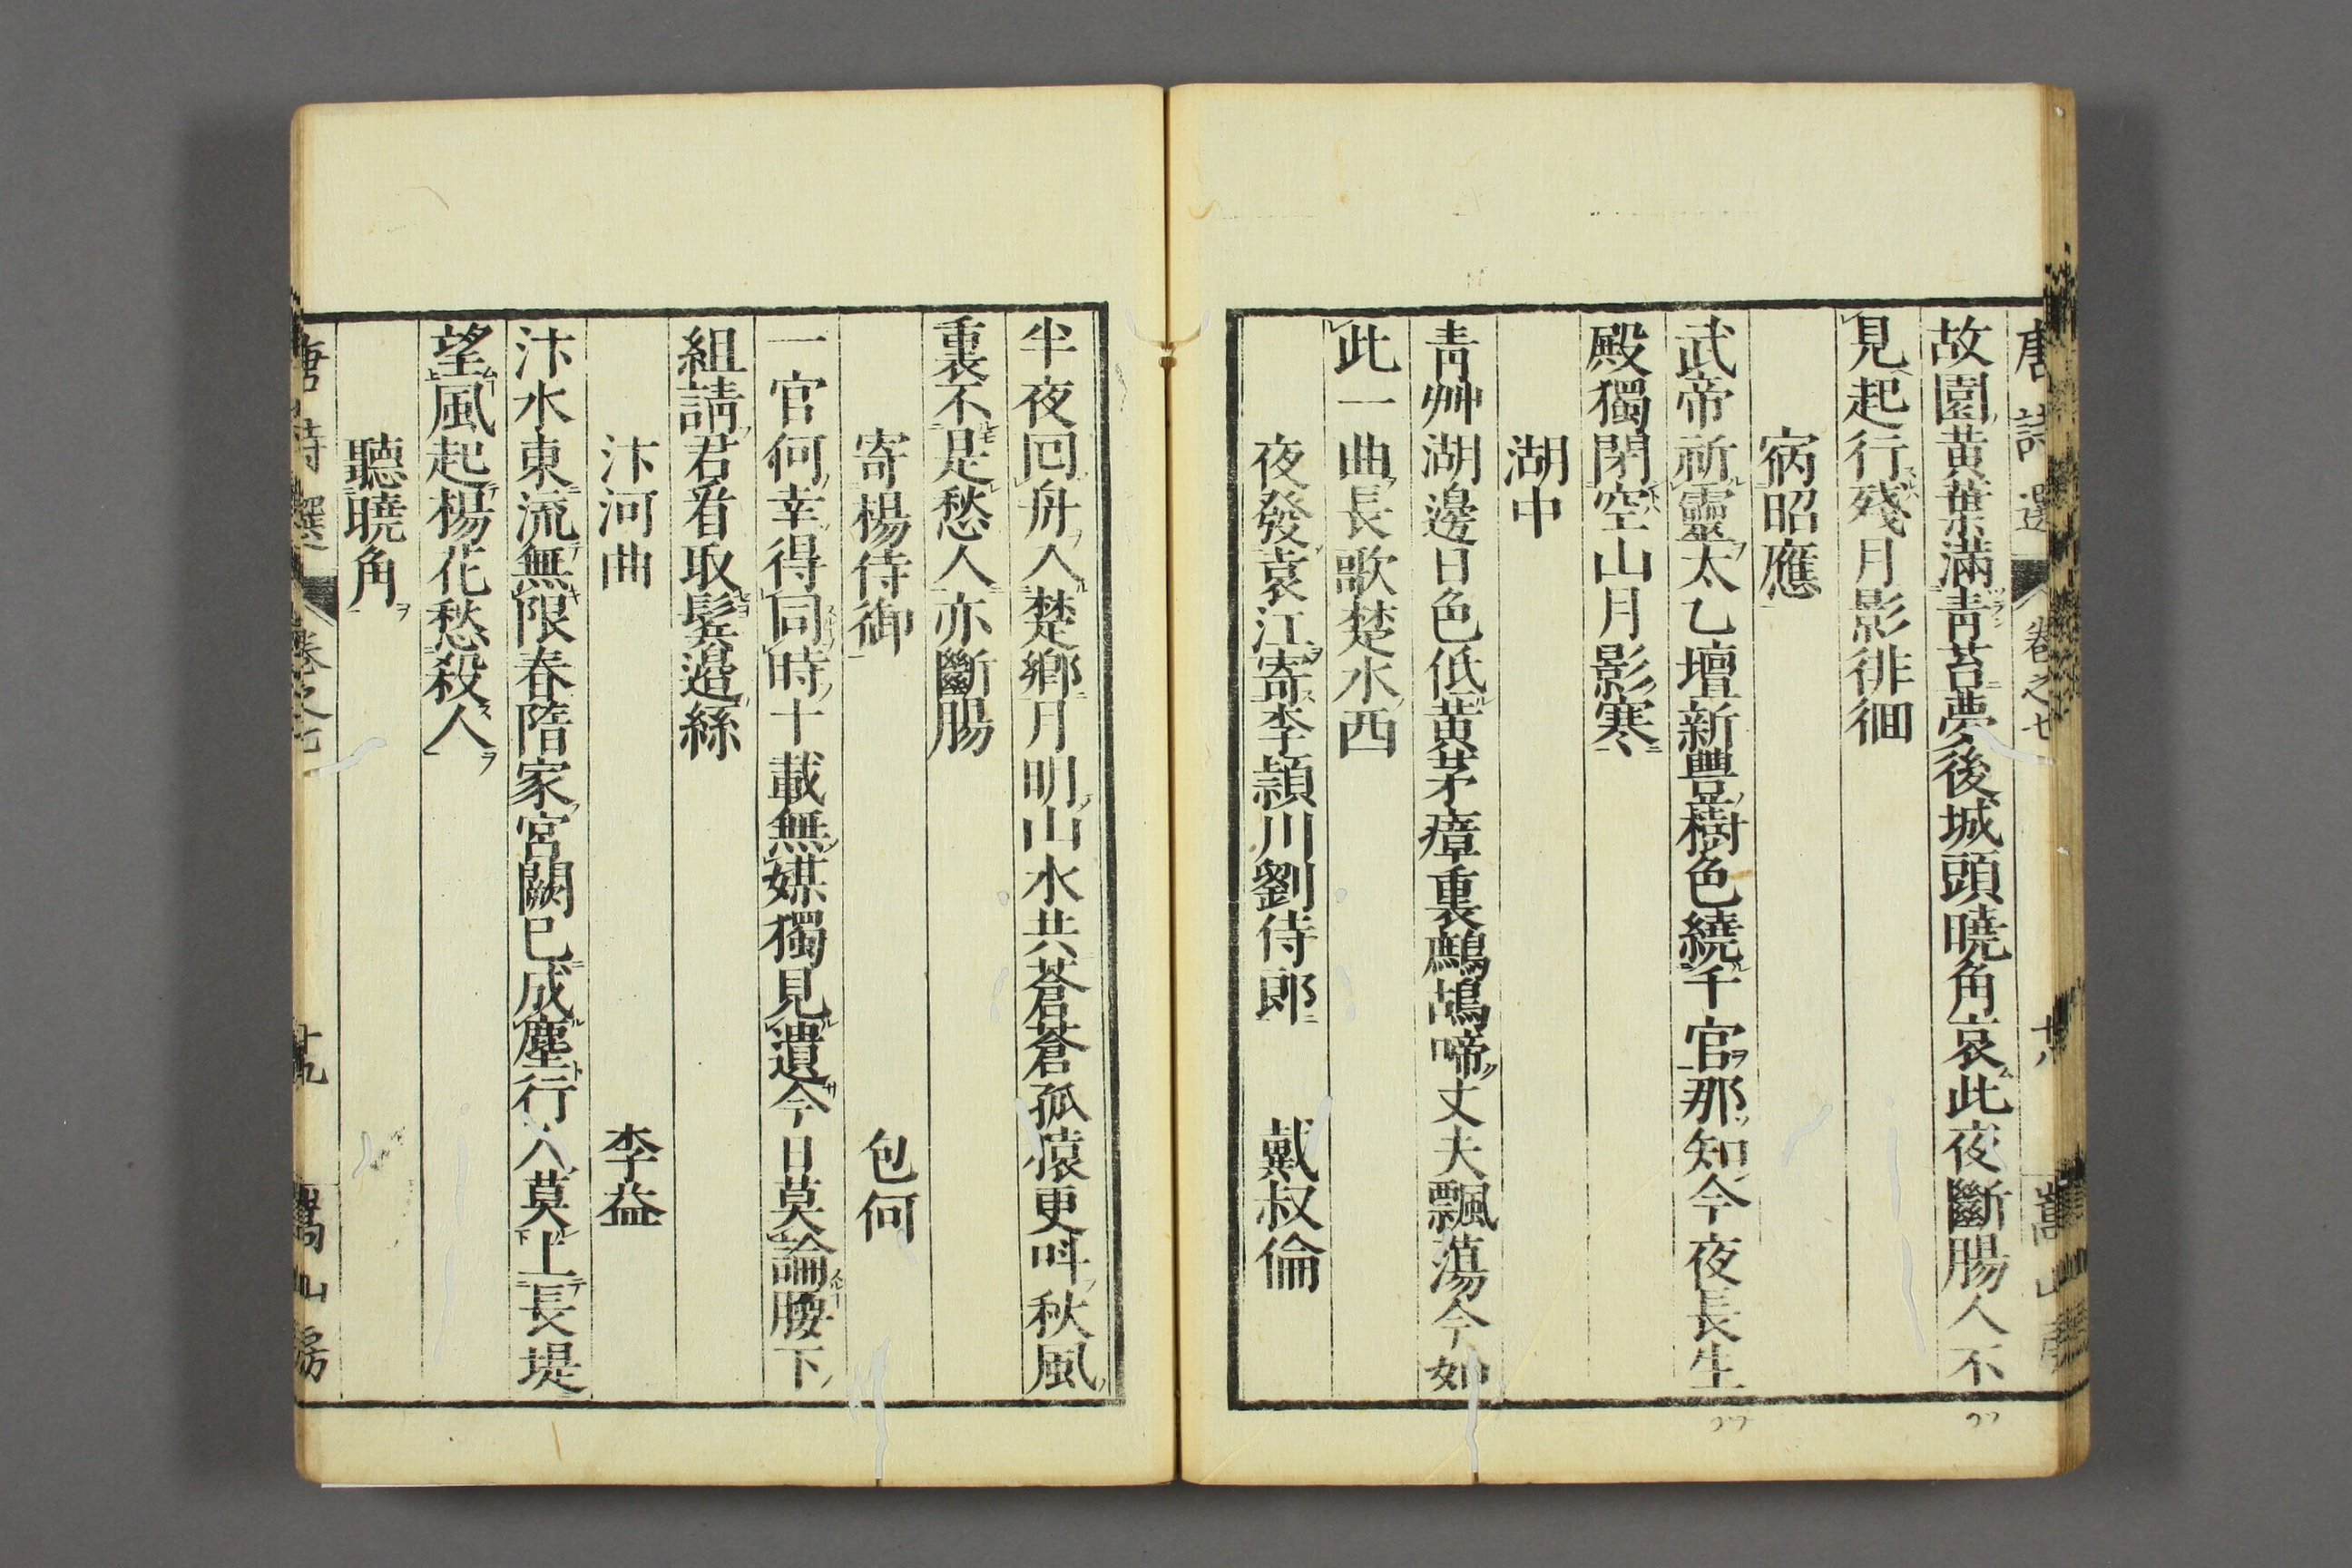 唐詩選 卷之七 十八 嵩山
故園黄葉滿靑苔夢後城頭曉角哀此夜斷腸人不
見起行殘月影徘徊
宿昭應
武帝祈靈太乙壇新豐樹色繞千官那知今夜長生
殿獨閉空山月影寒
湖中
靑艸湖邊日色低黄茅瘴裏鷓鴣啼丈夫飄蕩今如
此一曲長歌楚水西
夜發袁江寄李頴川劉侍郎 戴叔倫
半夜回舟入楚郷月明山水共蒼蒼孤猿更叫秋風
裏不是愁人亦斷腸
寄楊侍御 包何
一官何幸得同時十載無媒獨見遺今日莫論腰下
組請君看取鬂邉絲
汴河曲 李益
汴水東流無限春隋家宮闕已成塵行人莫上長堤
望風起楊花愁殺人
聽曉角
唐詩選 卷之七 十九 嵩山房